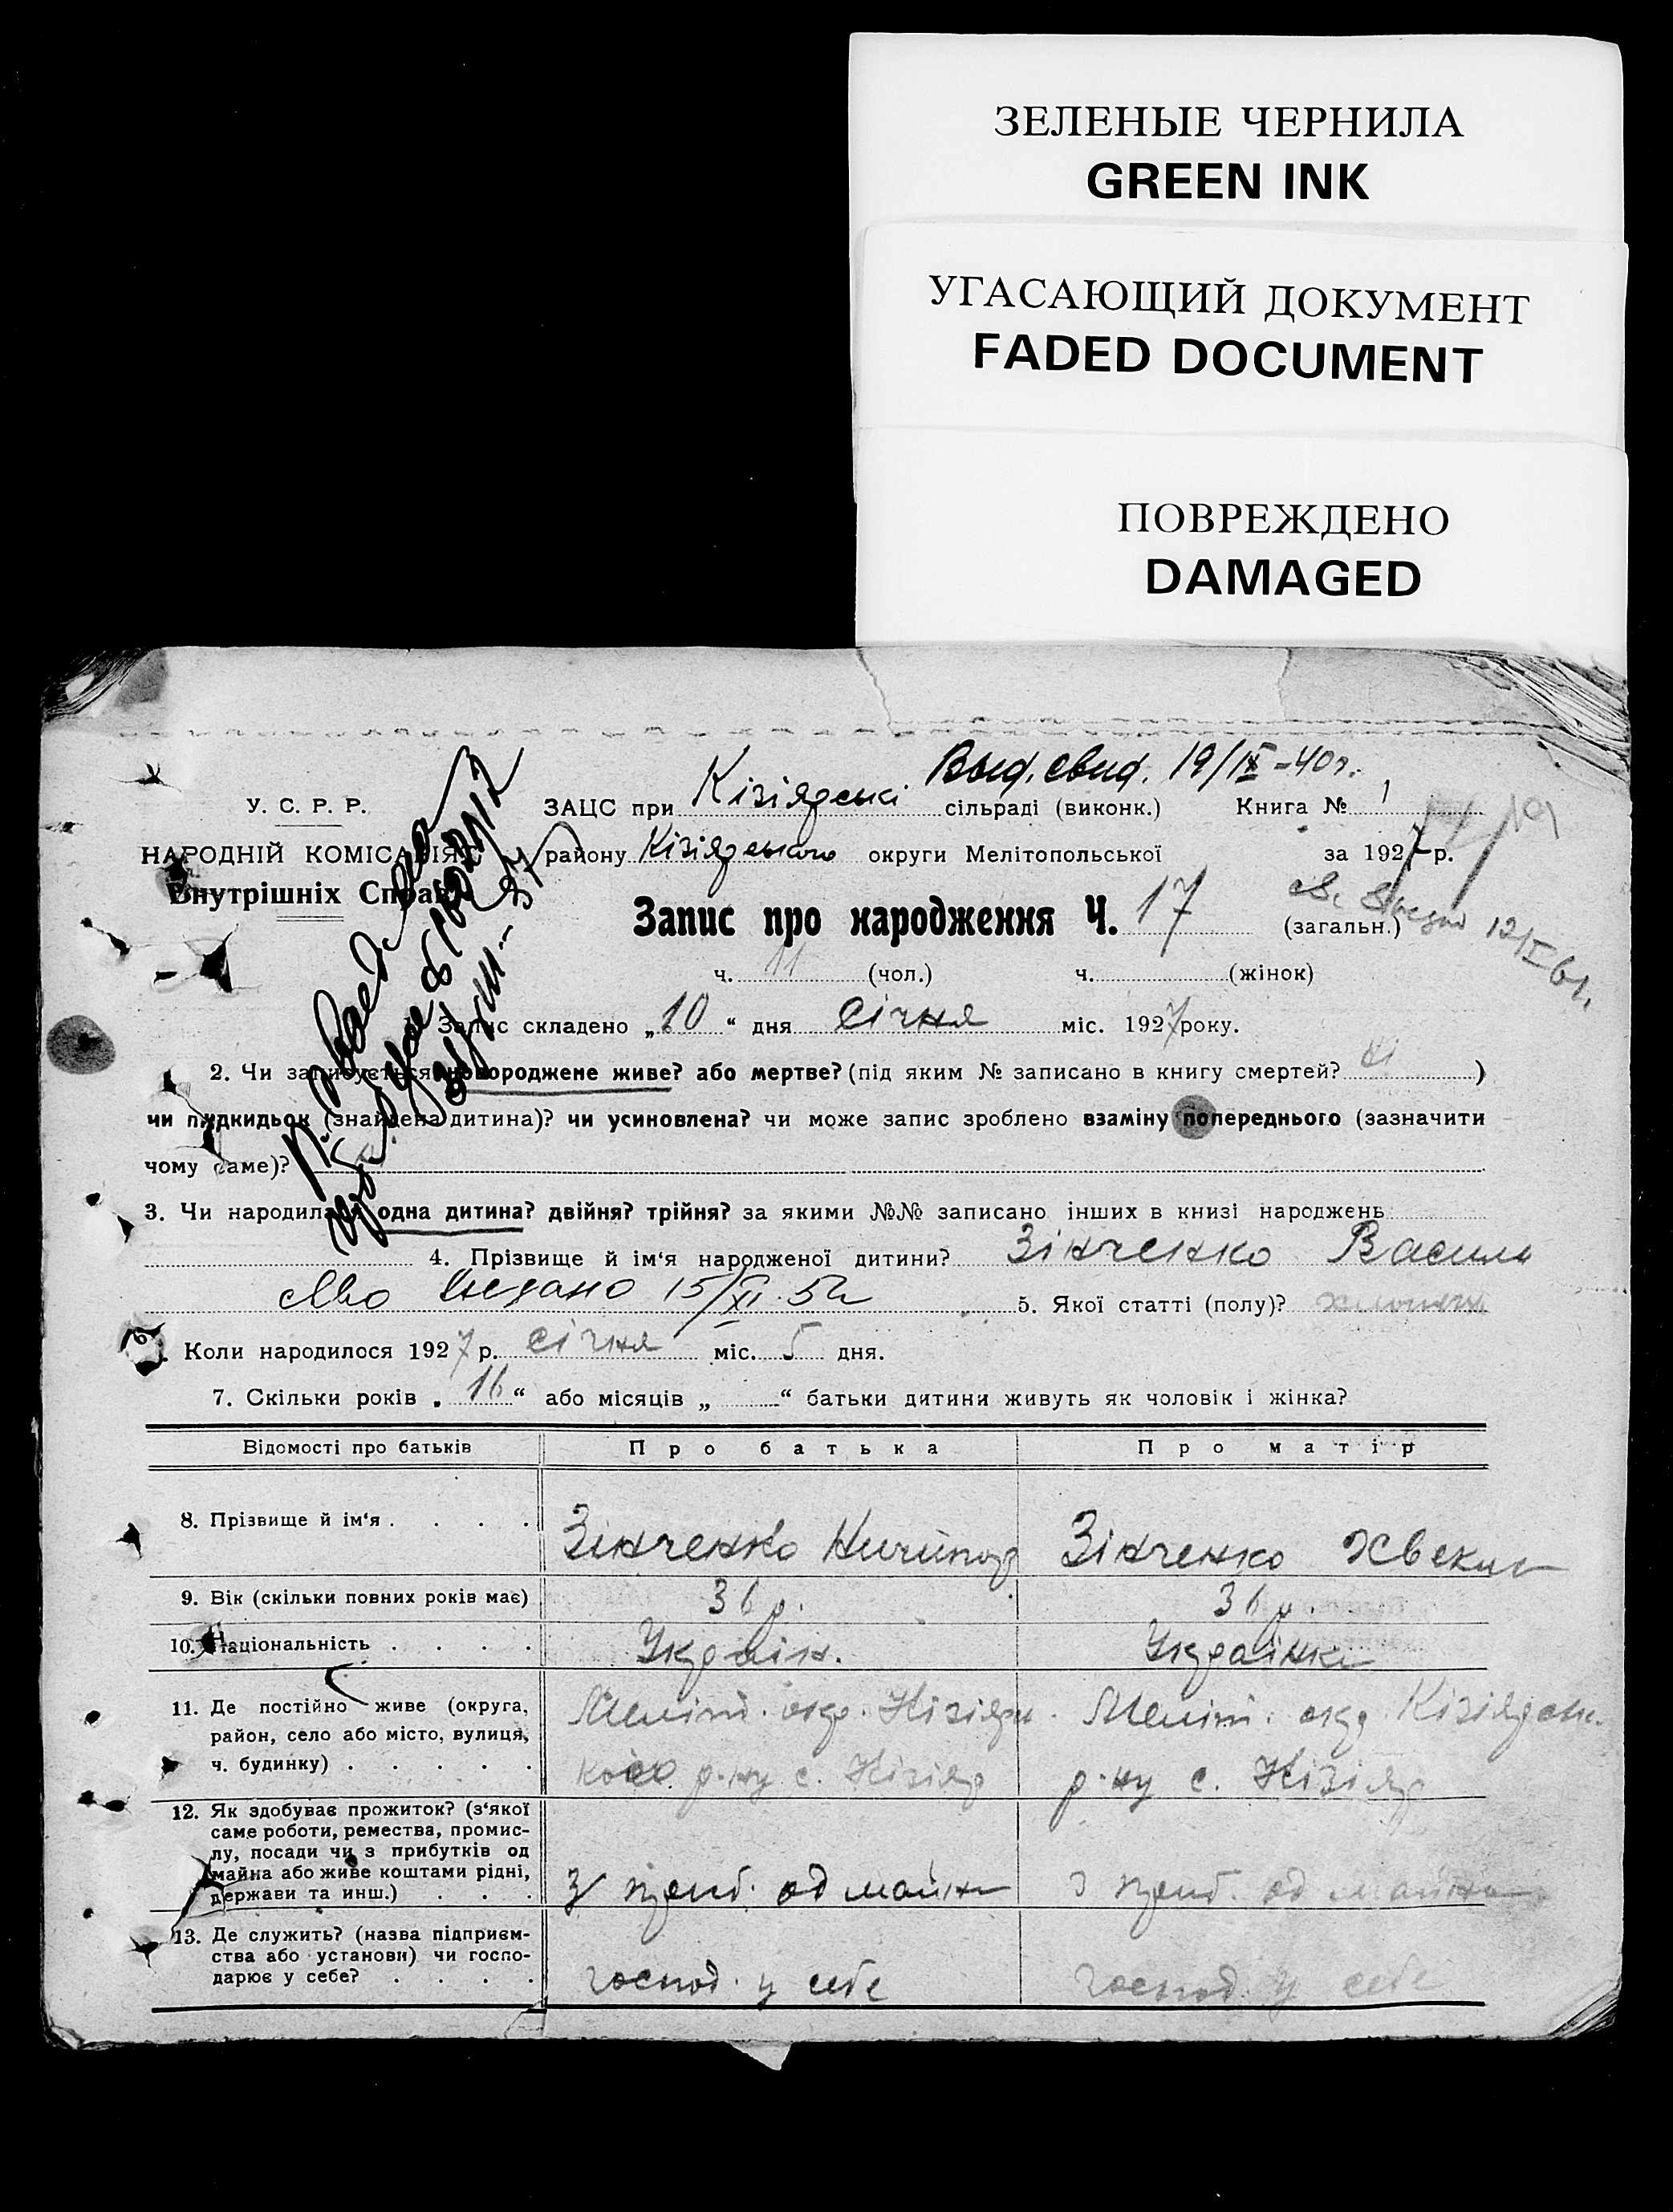 ЗЕЛЕНЫЕ ЧЕРНИЛА
GREEN INK
УГАСАЮЩИЙ ДОКУМЕНТ
FADED DOCUMENT
ПОВРЕЖДЕНО
DAMAGED
Выд. свид. 19/IX-40г.
У. С. Р. Р.
ЗАЦС при Кізіярські сільраді (виконк.) Книга № 1
НАРОДНІЙ КОМІСАРІЯТ району Кізіярського округи Мелітопольської за 1927 р.
Внутрішніх Справ
Запис про народження Ч. 17 (загальн.)
12/I 61.
ч. 11 (чол.) ч. (жінок)
Запис складено „10“ дня Січня міс. 1927 року.
2. Чи записується новороджене живе? або мертве? (під яким № записано в книгу смертей? )
чи підкидьок (знайдена дитина)? чи усиновлена? чи може запис зроблено взаміну попереднього (зазначити
чому саме)?
3. Чи народилася одна дитина? двійня? трійня? за якими №№ записано інших в книзі народжень
4. Прізвище й ім‘я народженої дитини? Зінченко Василь
15/XI 5. Якої статті (полу)? хлопчик
6. Коли народилося 1927 р. січня міс. 5 дня.
7. Скільки років „16“ або місяців „ “ батьки дитини живуть як чоловік і жінка?
Відомості про батьків Про батька Про матір
8. Прізвище й ім‘я . . . . Зінченко Ничипор Зінченко
9. Вік (скільки повних років має) 36 р. 36 р.
10. Національність . . . . Україн. Українка
11. Де постійно живе (округа,
район, село або місто, вулиця,
ч. будинку) . . . . .
Меліт. окр. Кізіярсь-
кого р-ну с. Кізіяр
Меліт. окр. Кізіярськ.
р-ну с. Кізіяр
12. Як здобуває прожиток? (з‘якої
саме роботи, ремества, промис-
лу, посади чи з прибутків од
майна або живе коштами рідні,
держави та инш.) . . .
З приб. од майна
З приб. од майна
13. Де служить? (назва підприєм-
ства або установи) чи госпо-
дарює у себе? . . . .
господ. у себе
господ. у себе